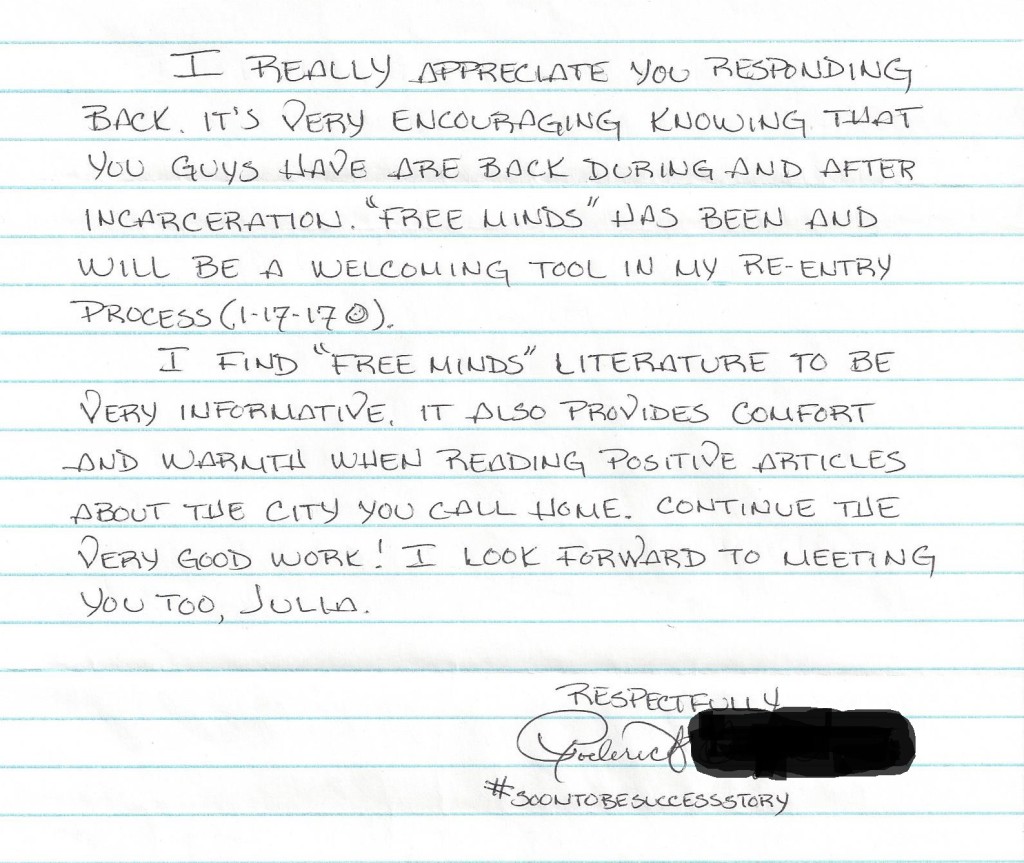 I REALLY APPRECIATE YOU RESPONDING
BACK. IT'S VERY ENCOURAGING KNOWING THAT
YOU GUYS HAVE ARE BACK DURING AND AFTER
INCARCERATION. "FREE MINDS" HAS BEEN AND
WILL BE A WELCOMING TOOL IN MY RE-ENTRY
PROCESS (1-17-17 ☺).
I FIND "FREE MINDS" LITERATURE TO BE
VERY INFORMATIVE. IT ALSO PROVIDES COMFORT
AND WARMTH WHEN READING POSITIVE ARTICLES
ABOUT THE CITY YOU CALL HOME. CONTINUE THE
VERY GOOD WORK! I LOOK FORWARD TO MEETING
YOU TOO, JULIA.
RESPECTFULLY
Roderick
#SOONTOBESUCCESSSTORY